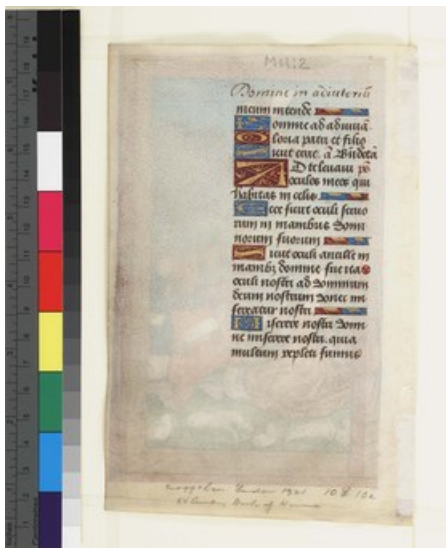 M11:2
Domine in adiutoriū
meum intende
omine ad adiuuā
loria patri et filio
icut erat. a Bñdcā
D te leuaui ps
oculos meos qui
habitas in celis
cce sicut oculi seruo
rum in manibus domi
norum suorum
icut oculi ancille in
manib; domine sue ita
oculi nostri ad dominum
deum nostrum donec mi
sereatur nostri
iserere nostri domi
ne miserere nostri. quia
multum repleti sumus
London 1921 10
Book of Hours